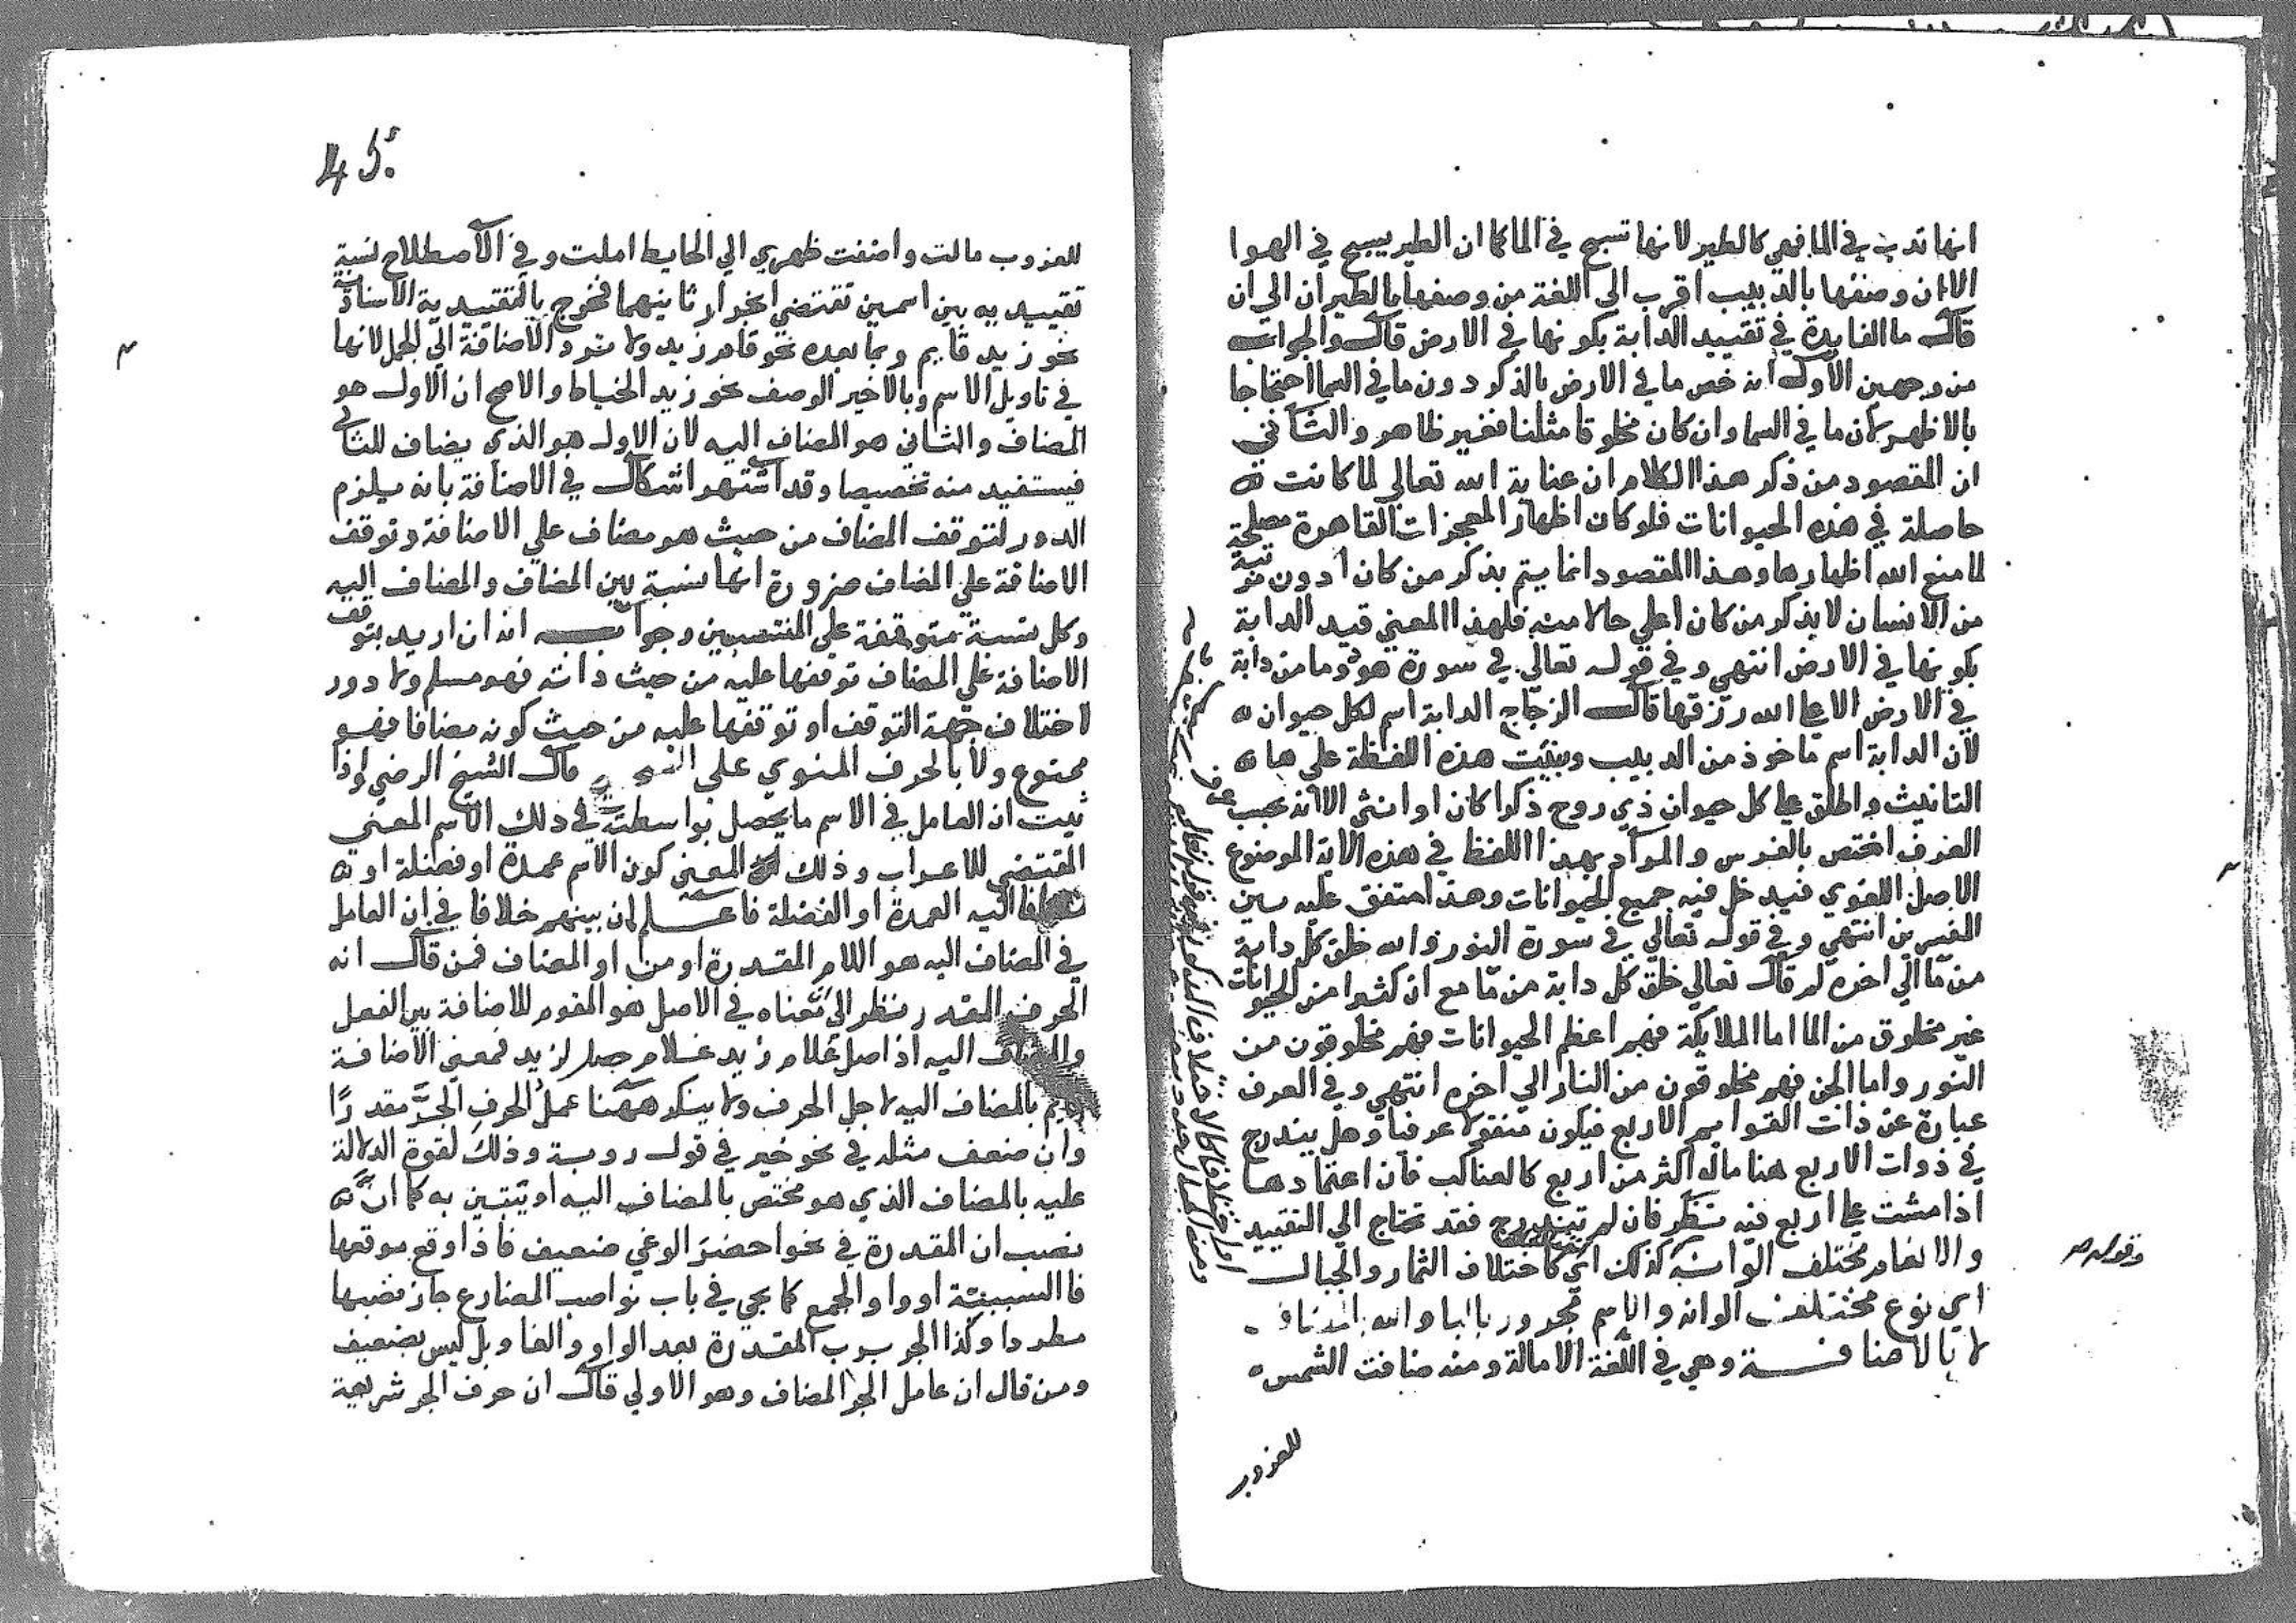 انها تدب في الما فهي كالطير لانها تسبح في الما كما ان الطير يسبح في الهوا
الا ان وصفها بالدبيب اقرب الى اللغة من وصفها بالطيران الى ان
قال ما الفايدة في تقييد الدابة بكونها في الارض قال والجواب
من وجهين الاول انه خص ما في الارض بالذكر دون ما في السما احتجاجا
بالاظهر لان ما في السما وان كان مخلوقا مثلنا فغير ظاهر والثاني
ان المقصود من ذكر هذا الكلام ان عناية الله تعالى لما كانت
حاصلة في هذه الحيوانات فلو كان اظهار المعجزات القاهرة مصلحة
لما منع الله اظهارها وهذا المقصود انما يتم بذكر من كان ادون مرتبة
من الانسان لا بذكر من كان اعلي حالا منه فلهذا المعني قيد الدابة
بكونها في الارض انتهي وفي قوله تعالى في سورة هود وما من دابة
في الارض الا على الله رزقها قال الزجاج الدابة اسم لكل حيوان
لان الدابة اسم ماخوذ من الدبيب وبنيت هذه اللفظة علي ها
التانيث واطلق على كل حيوان ذي روح ذكرا كان او انثى الا انه بحسب
العرف اختص بالفرس والمراد بهذا اللفظ في هذه الاية الموضوع
الاصل اللغوي فيدخل فيه جميع الحيوانات وهذا متفق عليه بين
المفسرين انتهي وفي قوله تعالى في سورة النور والله خلق كل دابة
من ما الي اخره لم قال تعالى خلق كل دابة من ما مع ان كثيرا من الحيوانات
غير مخلوق من الما اما الملايكة فهم اعظم الحيوانات فهم مخلوقون من
النور واما الجن فهم مخلوقون من النار الي اخره انتهي وفي العرف
عبارة عن ذات القوايم الاربع فيكون منقولا عرفيا وهل يندرج
في ذوات الاربع هنا ماله اكثر من اربع كالعناكب فان اعتمادها
اذا مشت على اربع فيه نظر فان لم تندرج فقد تحتاج الي التقييد
والانعام مختلف الوانه كذلك اي كاختلاف الثمار والجبال
اي نوع مختلف الوانه والاسم مجرور بالبا والله
لا بالاضافة وهي في اللغة الامالة ومنه ضافت الشمس
للغروب
وقوله
45
للغروب مالت واضفت ظهري الي الحايط املت وفي الاصطلاح نسبة
تقييديه بين اسمين تقتضي انجرار ثانيهما فخرج بالتقييدية الاسنادية
نحو زيد قايم وبما بعده نحو قام زيد ولا ترد الاضافة الي الجمل لانها
في تاويل الاسم وبالاخير الوصف نحو زيد الخياط والاصح ان الاول هو
المضاف والثاني هو المضاف اليه لان الاول هو الذي يضاف للثاني
فيستفيد منه تخصيصا وقد اشتهر اشكال في الاضافة بانه يلزم
الدور لتوقف المضاف من حيث هو مضاف علي الاضافة وتوقف
الاضافة علي المضاف ضرورة انها نسبة بين المضاف والمضاف اليه
وكل نسبة متوقفة علي المنتسبين وجوابه انه ان اريد بتوقف
الاضافة علي المضاف توقفها عليه من حيث ذاته فهو مسلم ولا دور
لاختلاف جهة التوقف او توقفها عليه من حيث كونه مضافا فهو
ممنوع ولا بالحرف المنوي على قال الشيخ الرضي اذا
ثبت ان العامل في الاسم ما يحصل بواسطته في ذلك الاسم المعنى
المقتضي للاعراب وذلك المعنى كون الاسم عمدة او فضلة او
مضافا اليه العمدة او الفضلة فاعلم ان بينهم خلافا في ان العامل
في المضاف اليه هو اللام المقدرة او من او المضاف فمن قال انه
الحرف المقدر نظر الي معناه في الاصل هو المقوم للاضافة بين الفعل
والمضاف اليه اذ اصل غلام زيد غلام حصل لزيد فمعنى الاضافة
قايم بالمضاف اليه لاجل الحرف ولا ينكر ههنا عمل الحرف الجر مقدرًا
وان ضعف مثله في نحو خير في قول روبة وذلك لقوة الدلالة
عليه بالمضاف الذي هو مختص بالمضاف اليه او يتبين به كما ان
نصب ان المقدرة في نحو احضرَ الوغي ضعيف فاذا وقع موقعها
فا السببية او واو الجمع كما يجي في باب نواصب المضارع جاز نصبها
مطردا وكذا الجر برب المقدرة بعد الواو والفا وبل ليس بضعيف
ومن قال ان عامل الجر المضاف وهو الاولي قال ان حرف الجر شريعة